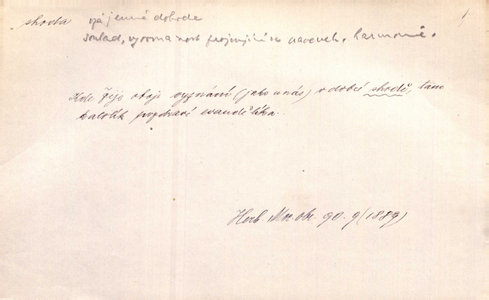 shoda vzájemná dohoda
soulad, vyrovnanost projevující se navenek, harmonie.
Kde žije oboje vyznání (jako u nás) v dobré shodě, tam
katolík pozdraví evandělíka.
Herb. Mor. obr. 90. 9 (1889)